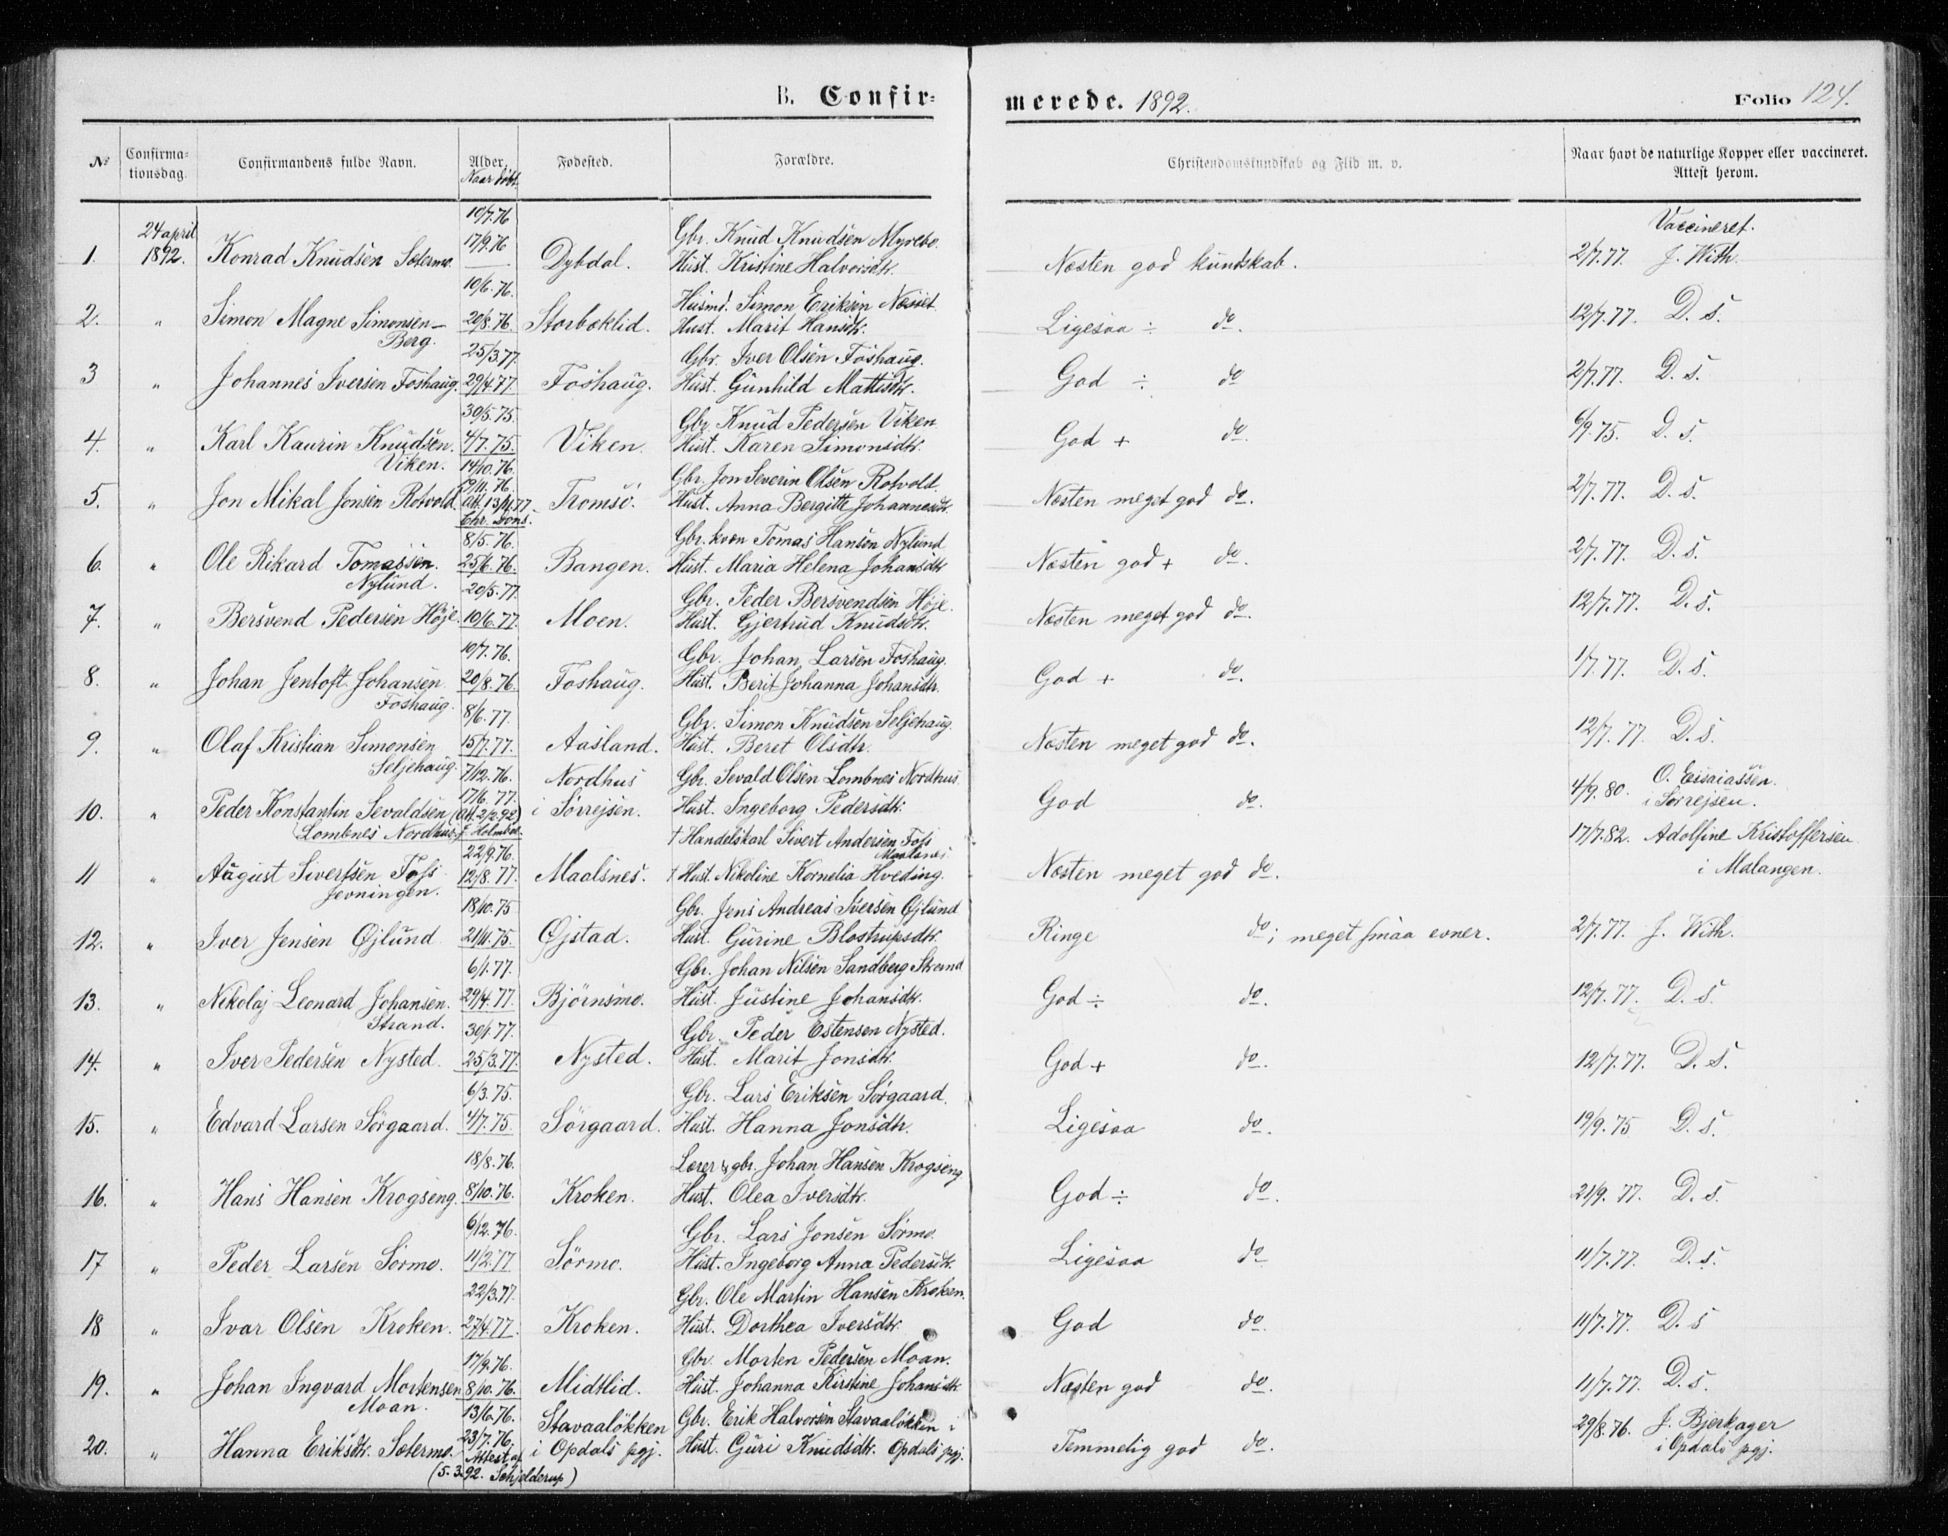 B. Confir-
merede. 1892.
Folio 124.
No
Confirma-
tionsdag.
Confirmandens fulde Navn.
Alder,
Naar døbt.
Fødested.
Forældre.
Christendomskundskab og Flid m. v.
Naar havt de naturlige Kopper eller vaccineret.
Attest herom.
24 april
1892.
10/7.76
17/9.76
1. Konrad Knudsen Sætermo. Dybdal.
Gbr. Knud Knudsen Myrebo.
Hust. Kristine Halvorsdtr.
Næsten god kundskab.
Vaccineret.
2/7.77. J. With.
10/6.76.
20/8.76.
2. " Simon Magne Simonsen-
Berg.
Storbæklid.
Husmd. Simon Eriksen Næsset
Hust. Marit Hansdtr.
Ligesaa ÷ do.
12/7.77. D. s.
25/3.77.
29/4.77
3 " Johannes Iversen Foshaug. Foshaug.
Gbr. Iver Olsen Foshaug.
Hust. Gunhild Mattisdtr.
God ÷ do
2/7.77. D. s.
30/5.75.
4/7.75.
4. " Karl Kaurin Knudsen.
Viken.
Viken.
Gbr. Knud Pedersen Viken
Hust. Karen Simonsdtr.
God + do.
6/9.75. D. s.
14/10.76.
19/11.76.
att. 13/4.77
Chr. Dons.
5. " Jon Mikal Jonsen Rotvold. Tromsö.
Gbr. Jon Severin Olsen Rotvold.
Hust. Anna Bergitte Johannesdtr.
Næsten meget god do.
2/7.77. D. s.
8/5.76.
25/6.76.
6. " Ole Rikard Tomassen.
Nylund.
Bangen.
Gbr. kvæn Tomas Hansen Nylund
Hust. Maria Helena Johansdtr
Næsten god + do.
2/7.77. D. s.
20/5.77.
10/6.77.
7. " Bersvend Pedersen Höje. Moen.
Gbr. Peder Bersvendsen Höje.
Hust. Gjertrud Knudsdtr.
Næsten meget god do.
12/7.77. D. s.
10/7.76.
20/8.76.
8. " Johan Jentoft Johansen
Foshaug.
Foshaug.
Gbr. Johan Larsen Foshaug.
Hust. Berit Johanna Johansdtr.
God + do.
1/7.77. D. s.
8/6.77.
15/7.77.
9. " Olaf Kristian Simonsen
Seljehaug.
Aasland.
Gbr. Simon Knudsen Seljehaug
Hust. Beret Olsdtr.
Næsten meget god do.
12/7.77. D. s.
7/12.76.
17/6.77.
(att. 2/2.92)
J. Holmboe
10. " Peder Konstantin Sevaldsen
Lombnes Nordhus.
Nordhus
i Sørrejsen.
Gbr. Sevald Olsen Lombnes Nordhus
Hust. Ingeborg Pedersdtr.
God do.
4/9.80. O. Esaiassen.
i Sørrejsen.
22/9.76.
12/8.77.
11 " August Sivertsen Foss
Jevningen.
Maalsnes.
† Handelskarl Sivert Andersen Foss
Maalsnes.
† Hust. Nikoline Kornelia Hveding.
Næsten meget god do.
17/7.82. Adolfine Kristoffersen
i Malangen.
18/10.75
21/11.75.
12. " Iver Jensen Øjlund. Øjstad.
Gbr. Jens Andreas Iversen Øjlund
Hust. Gurine Blostrupsdtr.
Ringe do; meget smaa evner.
2/7.77. J. With.
6/1.77.
29/4.77.
13. " Nikolaj Leonard Johansen.
Strand.
Bjørnsmo.
Gbr. Johan Nilsen Sandberg Strand
Hust. Justine Johansdtr.
God ÷ do.
12/7.77. D. s.
30/1.77.
25/3.77.
14. " Iver Pedersen Nysted. Nysted.
Gbr. Peder Estensen Nysted.
Hust. Marit Jonsdtr.
God + do.
12/7.77. D. s.
6/3.75.
4/7.75.
15. " Edvard Larsen Sörgaard. Sörgaard.
Gbr. Lars Eriksen Sörgaard.
Hust. Hanna Jonsdtr.
Ligesaa do.
19/9.75 D. s.
18/8.76.
8/10.76.
16. " Hans Hansen Krogseng. Kroken.
Lærer & gbr. Johan Hansen Krogseng
Hust. Olea Iversdtr.
God ÷ do.
21/9.77. D. s.
6/12.76.
11/2.77
17 " Peder Larsen Sørmo. Sörmo.
Gbr. Lars Jonsen Sørmo.
Hust. Ingeborg Anna Pedersdtr.
Ligesaa do
11/7.77. D. s.
22/3.77.
27/4.77.
18 " Ivar Olsen Kroken. Kroken.
Gbr. Ole Martin Hansen Kroken.
Hust. Dorthea Iversdtr.
God do.
11/7.77. D. s
17/9.76.
8/10.76.
19. " Johan Ingvard Mortensen
Moan.
Midtlid.
Gbr. Morten Pedersen Moan.
Hust. Johanna Kirstine Johansdtr.
Næsten god do.
11/7.77. D. s.
13/6.76.
23/7.76.
Attest af
(5.3.92. Schjelderup)
20. " Hanna Eriksdtr. Sætermo.
Stavaalökken
i Opdals pgj.
Gbr. Erik Halvorsen Stavaalökken i
Hust. Guri Knudsdtr. Opdals pgj.
Temmelig god do.
29/8.76. J. Bjerkager
i Opdals pgj.